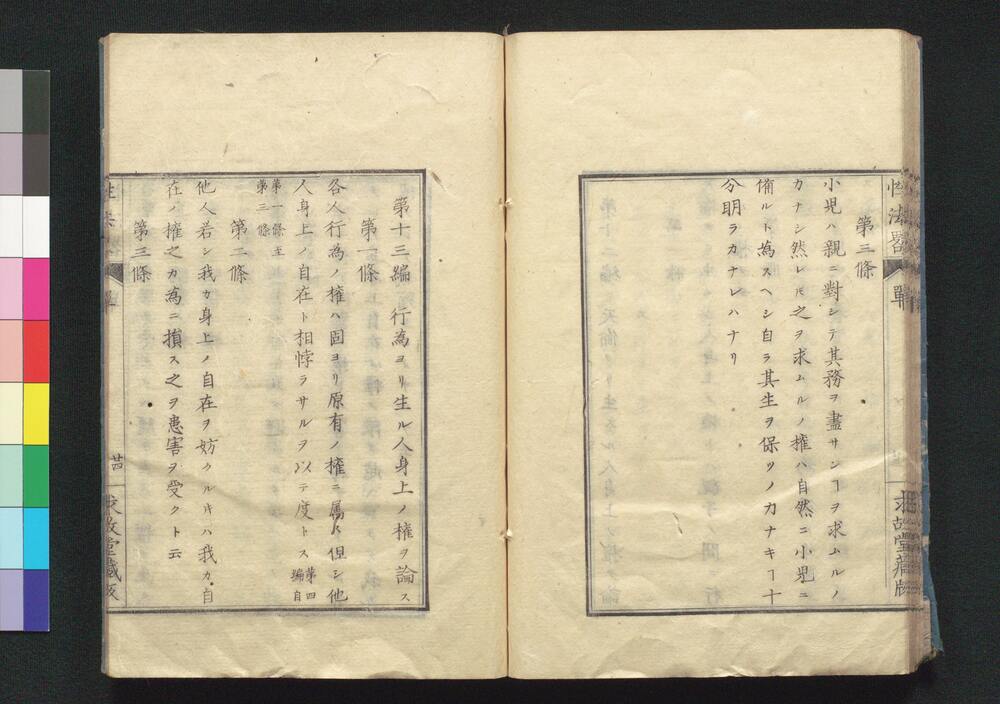 性法畧
單
求故堂藏版
第三條
小児ハ親ニ對シテ其務ヲ盡サンヿヲ求ムルノ
カナシ然レ𪜈之ヲ求ムルノ權ハ自然ニ小児ニ
備ルト為スヘシ自ラ其生ヲ保ツノカナキヿ十
分明ラカナレハナリ
第十三編 行為ヨリ生ル人身上ノ權ヲ論ス
第一條
各人行為ノ權ハ固ヨリ原有ノ權ニ属ス但シ他
人身上ノ自在ト相悖ラサルヲ以テ度トス第四
編自
第一條至
第三條
第二條
他人若シ我カ身上ノ自在ヲ妨クル片ハ我カ自
在ノ權之カ為ニ損ス之ヲ患害ヲ受クト云
第三條
單
求故堂藏版